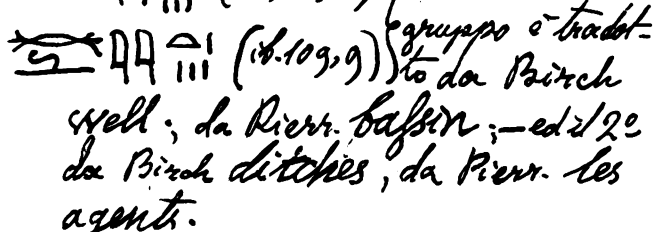 (ib. 109, 9) gruppo è tradot=
to da Birch
well; da Pierr. bassin; — ed il 2º
da Birch ditches, da Pierr. les
agents.